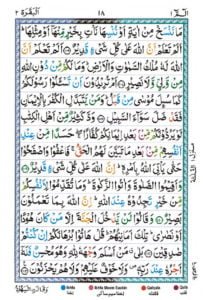 البقرة ٢ ١٨ الٓمّٓ ١
مَا نَنْسَخْ مِنْ اٰيَةٍ اَوْ نُنْسِهَا نَاْتِ بِخَيْرٍ مِّنْهَاۤ اَوْ مِثْلِهَا ؕ
اَلَمْ تَعْلَمْ اَنَّ اللّٰهَ عَلٰى كُلِّ شَیْءٍ قَدِیْرٌ ۝ اَلَمْ تَعْلَمْ اَنَّ
اللّٰهَ لَهٗ مُلْكُ السَّمٰوٰتِ وَالْاَرْضِ ؕ وَمَا لَكُمْ مِّنْ دُوْنِ اللّٰهِ
مِنْ وَّلِیٍّ وَّلَا نَصِیْرٍ ۝ اَمْ تُرِیْدُوْنَ اَنْ تَسْـَٔلُوْا رَسُوْلَكُمْ
كَمَا سُىِٕلَ مُوْسٰى مِنْ قَبْلُ ؕ وَمَنْ یَّتَبَدَّلِ الْكُفْرَ بِالْاِیْمَانِ
فَقَدْ ضَلَّ سَوَآءَ السَّبِیْلِ ۝ وَدَّ كَثِیْرٌ مِّنْ اَهْلِ الْكِتٰبِ
لَوْ یَرُدُّوْنَكُمْ مِّنْۢ بَعْدِ اِیْمَانِكُمْ كُفَّارًا ۖۚ حَسَدًا مِّنْ عِنْدِ
اَنْفُسِهِمْ مِّنْۢ بَعْدِ مَا تَبَیَّنَ لَهُمُ الْحَقُّ ۚ فَاعْفُوْا وَاصْفَحُوْا
حَتّٰى یَاْتِیَ اللّٰهُ بِاَمْرِهٖ ؕ اِنَّ اللّٰهَ عَلٰى كُلِّ شَیْءٍ قَدِیْرٌ ۝
وَاَقِیْمُوا الصَّلٰوةَ وَاٰتُوا الزَّكٰوةَ ؕ وَمَا تُقَدِّمُوْا لِاَنْفُسِكُمْ
مِّنْ خَیْرٍ تَجِدُوْهُ عِنْدَ اللّٰهِ ؕ اِنَّ اللّٰهَ بِمَا تَعْمَلُوْنَ
بَصِیْرٌ ۝ وَقَالُوْا لَنْ یَّدْخُلَ الْجَنَّةَ اِلَّا مَنْ كَانَ هُوْدًا اَوْ
نَصٰرٰى ؕ تِلْكَ اَمَانِیُّهُمْ ؕ قُلْ هَاتُوْا بُرْهَانَكُمْ اِنْ كُنْتُمْ
صٰدِقِیْنَ ۝ بَلٰى ۗ مَنْ اَسْلَمَ وَجْهَهٗ لِلّٰهِ وَهُوَ مُحْسِنٌ فَلَهٗۤ
اَجْرُهٗ عِنْدَ رَبِّهٖ ۪ وَلَا خَوْفٌ عَلَیْهِمْ وَلَا هُمْ یَحْزَنُوْنَ ۝